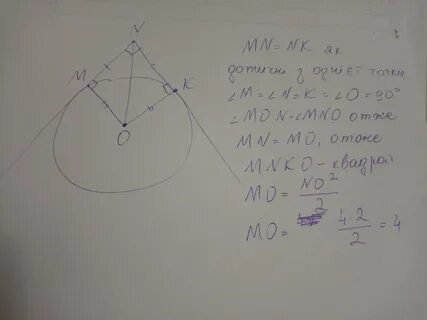 N
M
K
O
MN = NK як
дотичні з однієї точки
∠M = ∠N = K = ∠O = 90°
∠MON = ∠MNO отже
MN = MO, отже
MNKO - квадрат
MO = NO²/2
MO = 4·2/2 = 4